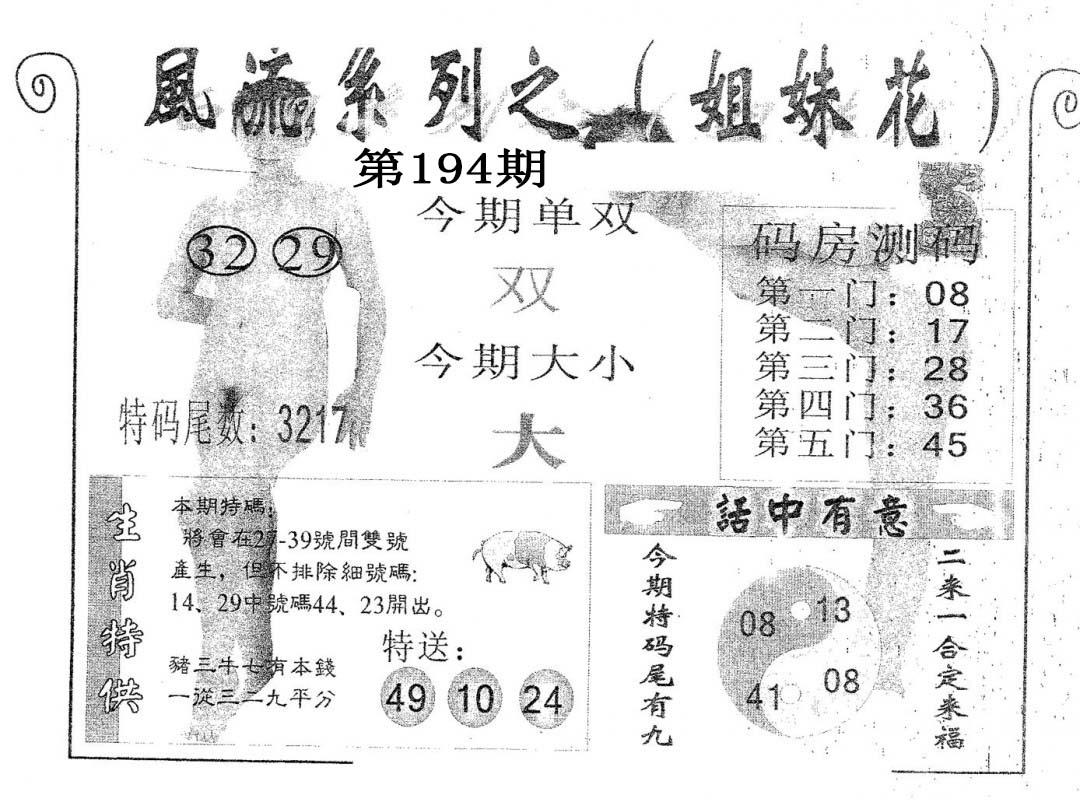 風流系列之（姐妹花）
第194期
32 29
今期单双
双
今期大小
大
特码尾数：3217
码房测码
第一门：08
第二门：17
第三门：28
第四门：36
第五门：45
生肖特供
本期特碼：
將會在27-39號間雙號
產生，但不排除細號碼:
14、29中號碼44、23開出。
豬三牛七有本錢
一從三二九平分
特送：
49 10 24
話中有意
今期特码尾有九
08 13
41 08
二来一合定来福